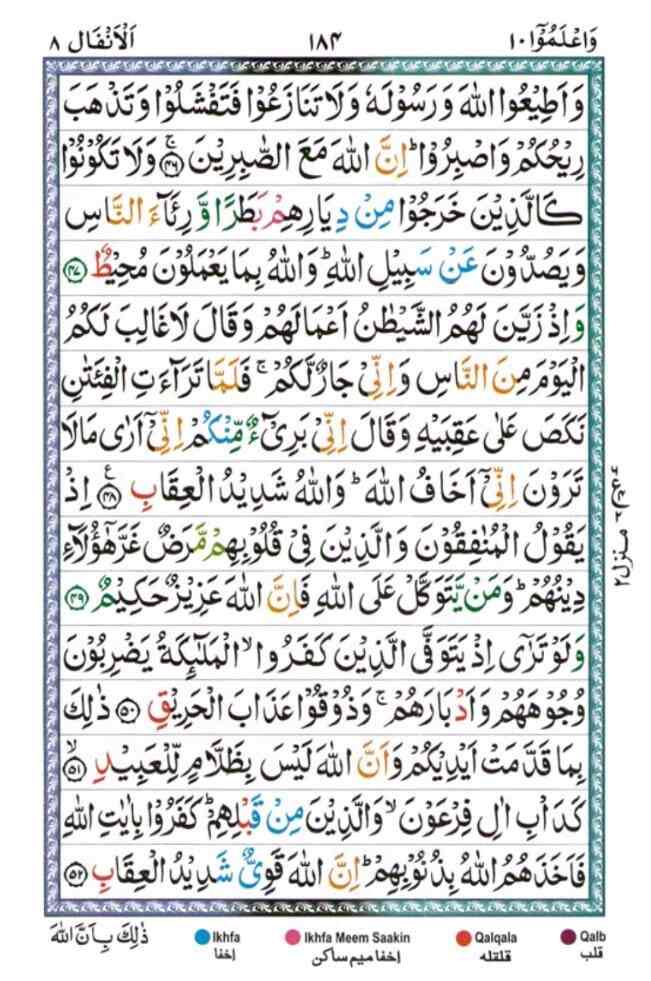 وَاعْلَمُوْٓا ١٠ ١٨٤ اَلْاَنْفَال ٨
وَاَطِيْعُوا اللّٰهَ وَرَسُوْلَهٗ وَلَا تَنَازَعُوْا فَتَفْشَلُوْا وَتَذْهَبَ
رِيْحُكُمْ وَاصْبِرُوْاؕ اِنَّ اللّٰهَ مَعَ الصّٰبِرِيْنَۚ ﴿٤٦﴾ وَلَا تَكُوْنُوْا
كَالَّذِيْنَ خَرَجُوْا مِنْ دِيَارِهِمْ بَطَرًا وَّ رِئَآءَ النَّاسِ
وَيَصُدُّوْنَ عَنْ سَبِيْلِ اللّٰهِؕ وَاللّٰهُ بِمَا يَعْمَلُوْنَ مُحِيْطٌ ﴿٤٧﴾
وَاِذْ زَيَّنَ لَهُمُ الشَّيْطٰنُ اَعْمَالَهُمْ وَقَالَ لَا غَالِبَ لَكُمُ
الْيَوْمَ مِنَ النَّاسِ وَاِنِّيْ جَارٌ لَّكُمْۚ فَلَمَّا تَرَآءَتِ الْفِئَتٰنِ
نَكَصَ عَلٰى عَقِبَيْهِ وَقَالَ اِنِّيْ بَرِيْٓءٌ مِّنْكُمْ اِنِّيْٓ اَرٰى مَا لَا
تَرَوْنَ اِنِّيْٓ اَخَافُ اللّٰهَؕ وَاللّٰهُ شَدِيْدُ الْعِقَابِ ﴿٤٨﴾ۧ اِذْ
يَقُوْلُ الْمُنٰفِقُوْنَ وَالَّذِيْنَ فِيْ قُلُوْبِهِمْ مَّرَضٌ غَرَّ هٰٓؤُلَآءِ
دِيْنُهُمْؕ وَمَنْ يَّتَوَكَّلْ عَلَى اللّٰهِ فَاِنَّ اللّٰهَ عَزِيْزٌ حَكِيْمٌ ﴿٤٩﴾
وَلَوْ تَرٰٓى اِذْ يَتَوَفَّى الَّذِيْنَ كَفَرُواۙ الْمَلٰٓئِكَةُ يَضْرِبُوْنَ
وُجُوْهَهُمْ وَاَدْبَارَهُمْۚ وَذُوْقُوْا عَذَابَ الْحَرِيْقِ ﴿٥٠﴾ ذٰلِكَ
بِمَا قَدَّمَتْ اَيْدِيْكُمْ وَاَنَّ اللّٰهَ لَيْسَ بِظَلَّامٍ لِّلْعَبِيْدِۙ ﴿٥١﴾
كَدَاْبِ اٰلِ فِرْعَوْنَۙ وَالَّذِيْنَ مِنْ قَبْلِهِمْؕ كَفَرُوْا بِاٰيٰتِ اللّٰهِ
فَاَخَذَهُمُ اللّٰهُ بِذُنُوْبِهِمْؕ اِنَّ اللّٰهَ قَوِيٌّ شَدِيْدُ الْعِقَابِ ﴿٥٢﴾
منزل ٢
ذٰلِكَ بِاَنَّ اللّٰهَ
Ikhfa
إخفا
Ikhfa Meem Saakin
إخفا ميم ساكن
Qalqala
قلقله
Qalb
قلب